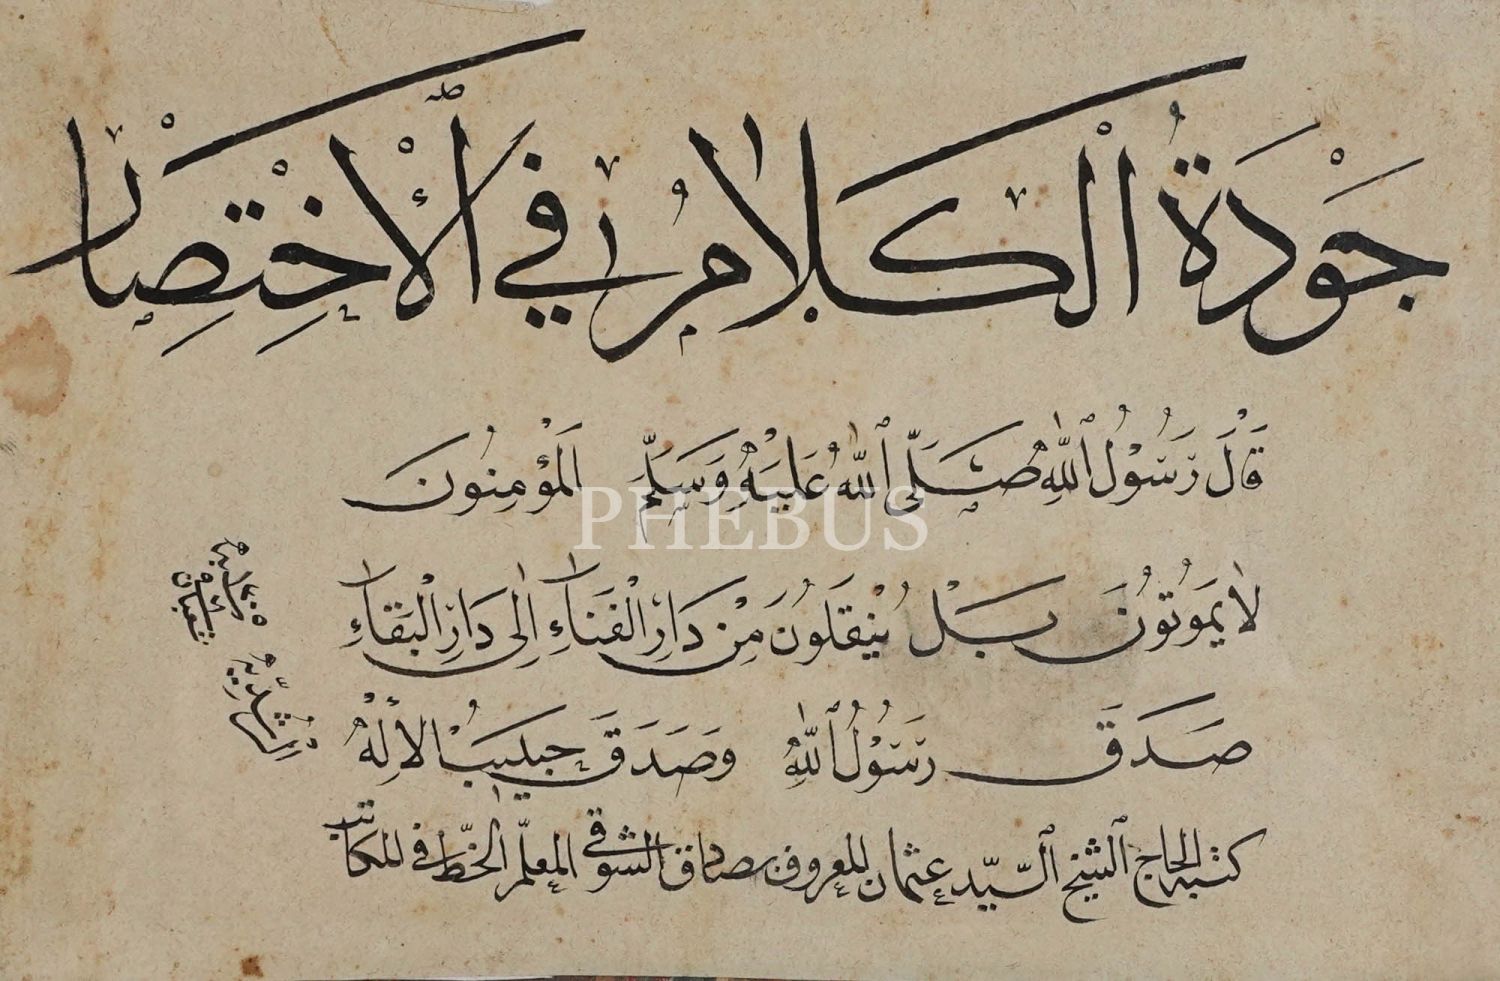 جَوْدَةُ الْكَلَامِ فِي الْاِخْتِصَارْ
قَالَ رَسُوْلُ اللّٰهِ صَلَّى اللّٰهُ عَلَيْهِ وَسَلَّمَ اَلْمُؤْمِنُونَ
لَا يَمُوتُونَ بَلْ يُنْقَلُونَ مِنْ دَارِ الْفَنَاءِ اِلَى دَارِ الْبَقَاءِ
صَدَقَ رَسُوْلُ اللّٰهِ وَصَدَقَ حَبِيبُ الْاِلٰهْ
كتبه الحاج الشيخ السيّد عثمان المعروف بصادق الشوقى المعلّم الخطّ فى المكاتب
PHEBUS